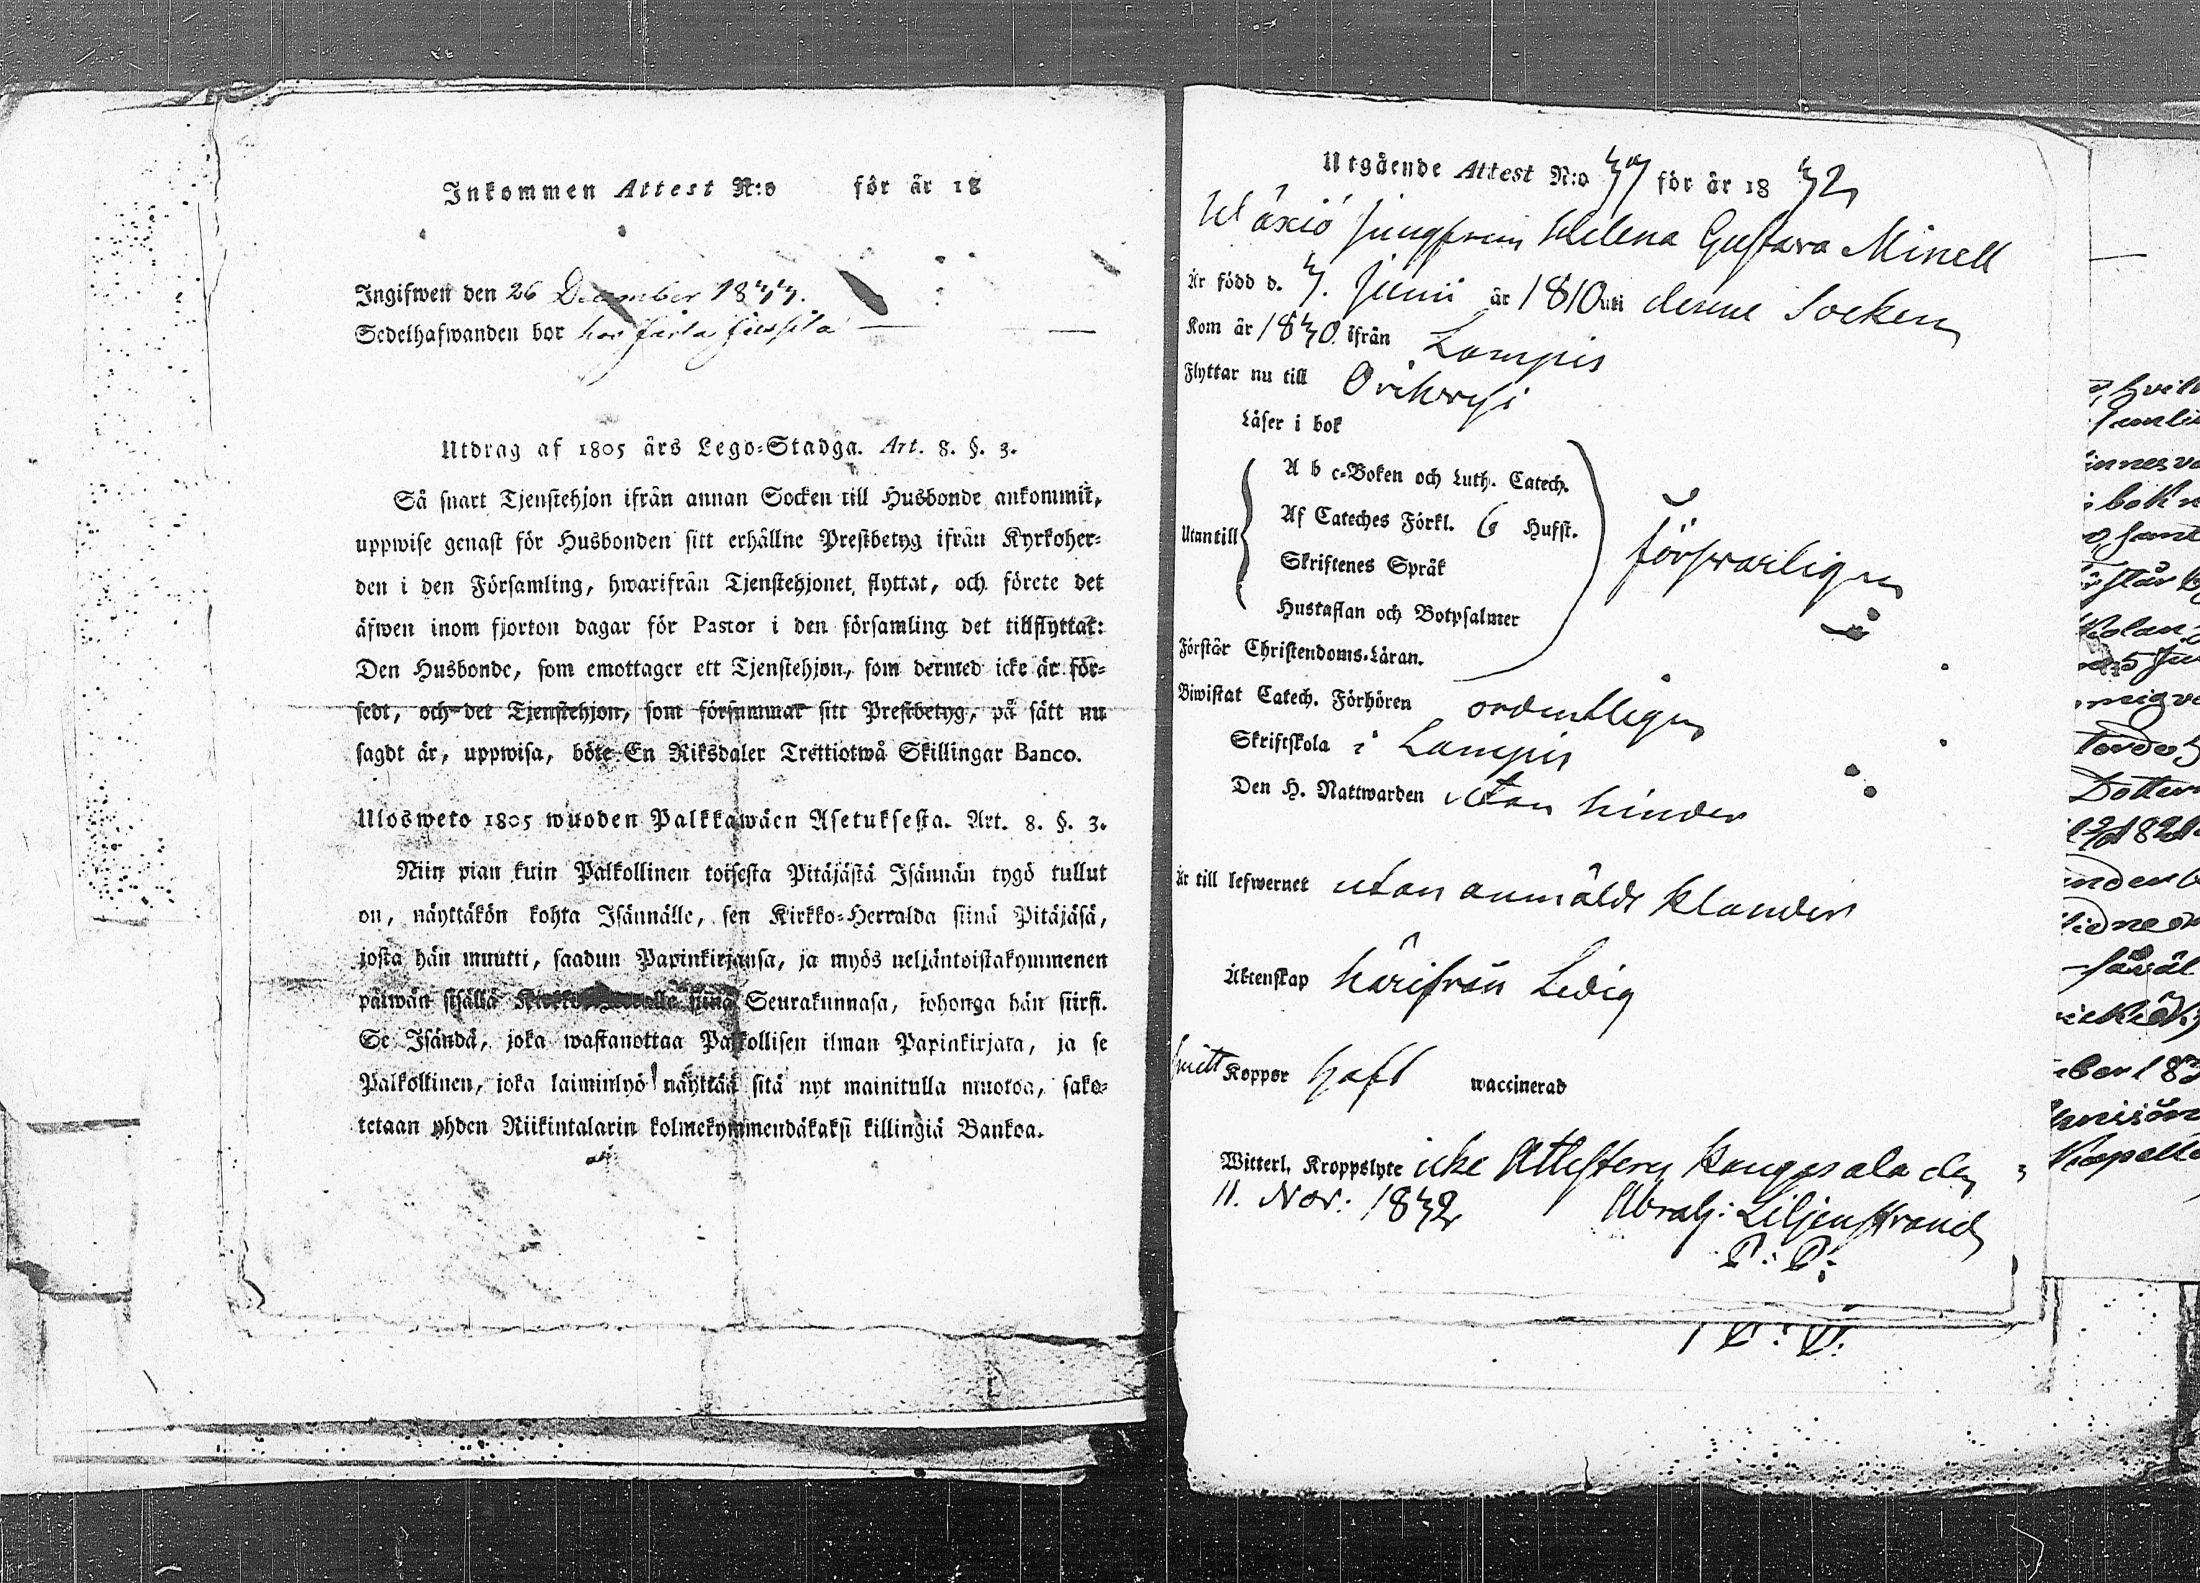 Inkommen Attest N:o för år 18
Ingifwen den 26 December 1844.
Sedelhafwanden bor hos
Utdrag af 1805 års Lego-Stadga. Art. 8. §. 3.
Så snart Tjenstehjon ifrån annan Socken till Husbonde ankommit,
uppwise genast för Husbonden sitt erhållne Prestbetyg ifrån Kyrkoher-
den i den Församling, hwarifrån Tjenstehjonet flyttat, och förete det
äfwen inom fjorton dagar för Pastor i den församling det tillflyttat:
Den Husbonde, som emottager ett Tjenstehjon, som dermed icke är för-
sedt, och det Tjenstehjon, som försummar sitt Prestbetyg, på sätt nu
sagdt är, uppwisa, böte En Riksdaler Trettiotwå Skillingar Banco.
Ulosweto 1805 wuoden Palkkawäen Asetuksesta. Art. 8. §. 3.
Niin pian kuin Palkollinen toisesta Pitäjästä Isännän tygö tullut
on, näyttäkön kohta Isännälle, sen Kirkko-Herralda siinä Pitäjäsä,
josta hän muutti, saadun Papinkirjansa, ja myös neljäntoistakymmenen
päiwän sisällä siinä Seurakunnasa, johonga hän siirsi.
Se Isändä, joka wastanottaa Palkollisen ilman Papinkirjata, ja se
Palkollinen, joka laiminlyö näyttää sitä nyt mainitulla muotoa, sako-
tetaan yhden Riikintalarin kolmekymmendäkaksi killingiä Bankoa.
Utgående Attest N:o 47 för år 18 42
Wäxiö Jungfrun Helena Gustava Minell
Är född d. 4. Junii år 1810 uti denne Socken
Kom år 1840 ifrån Lampis
Flyttar nu till Orihvesi
Läser i bok
Utantill
A b c-Boken och Luth. Catech.
Af Cateches Förkl. 6 Hufst.
Skriftenes Språk
Hustaflan och Botpsalmer
försvarligen
Förstår Christendoms-Läran.
Biwistat Catech. Förhören ordentligen
Skriftskola i Lampis
Den H. Nattwarden utan hinder
Är till lefwernet utan anmäldt klander
Äktenskap härifrån Ledig
Koppor haft waccinerad
Witterl. Kroppslyte icke Attesterar Kangasala den
11. Nov: 1842 Abrah: Liljenstrand
P. P.